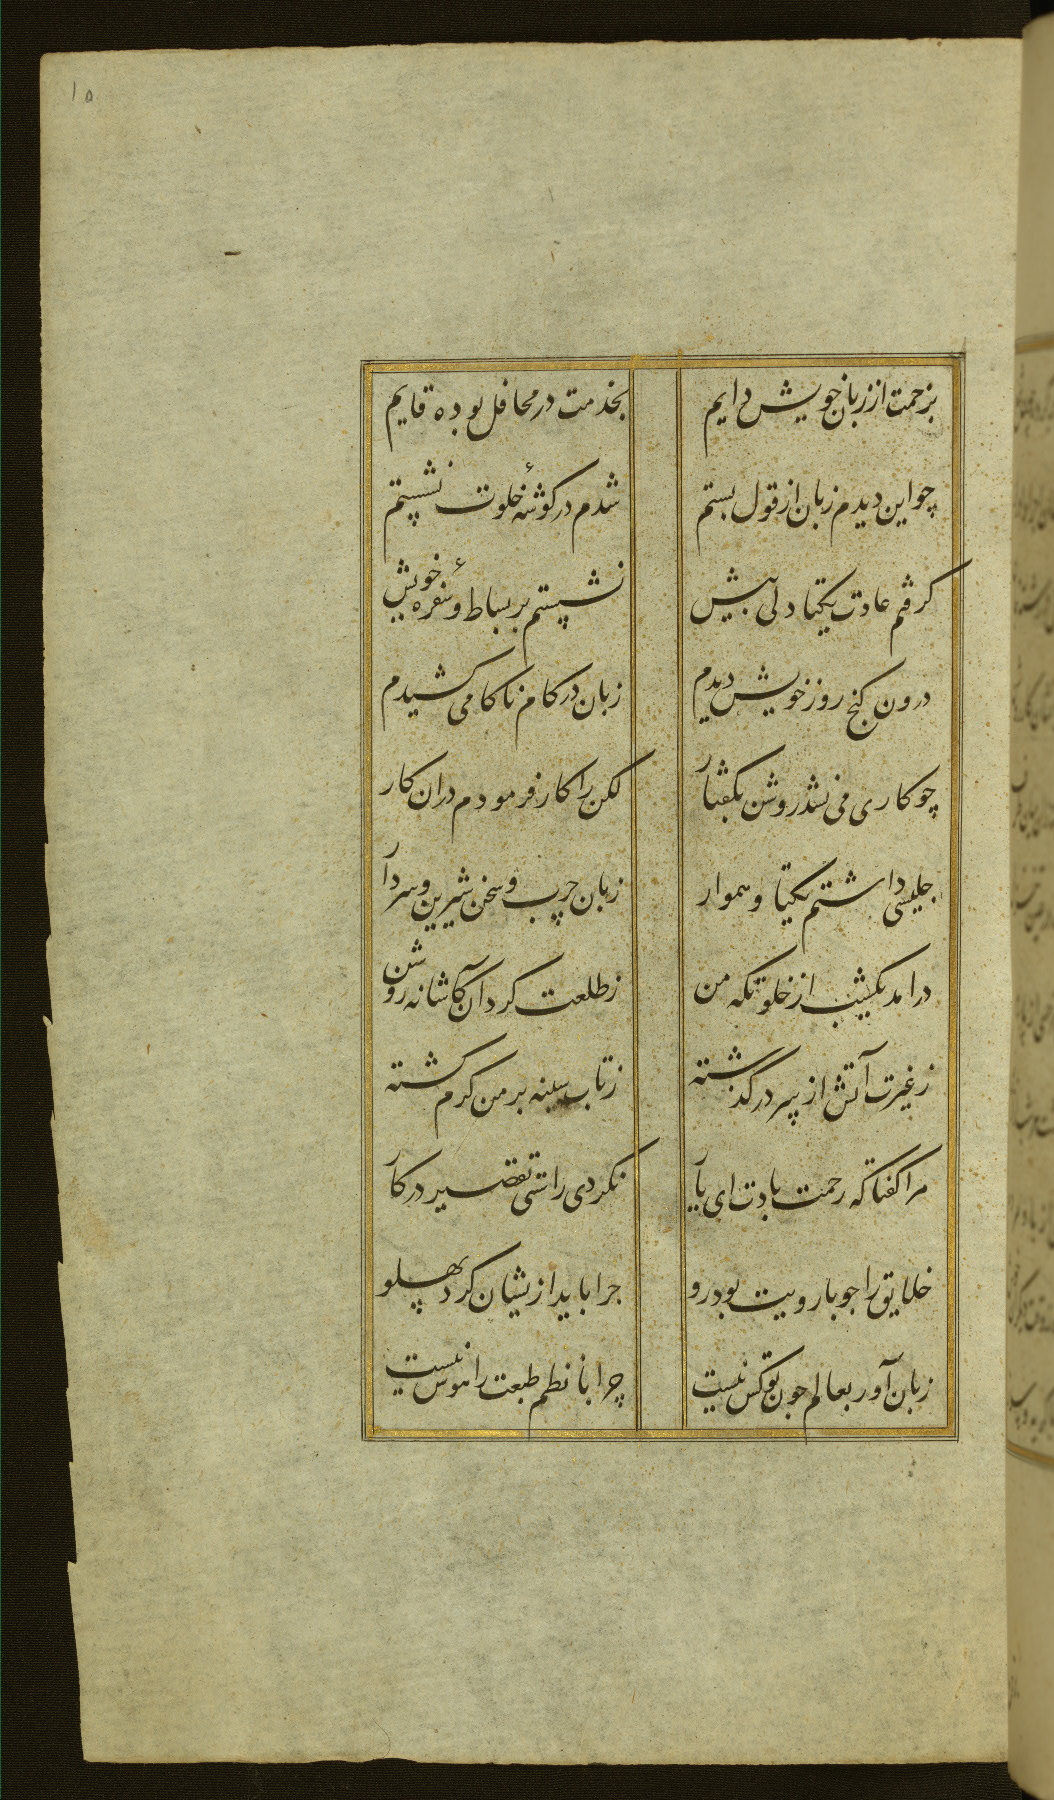 ۱۵
بزحمت از زبان خویش دایم
بخدمت در محافل بوده قایم
چو این دیدم زبان از قول بستم
شدم در کوشهٔ خلوت نشستم
کرفتم عادت یکتا دلی پیش
نشستم بر بساط و سفرهٔ خویش
درون کنج روز خویش دیدم
زبان در کام ناکامی کشیدم
چو کاری می نشد روشن بکفتار
لکن را کار فرمودم دران کار
جلیسی داشتم یکتا و هموار
زبان چرب و سخن شیرین و سردار
درامد یکشب از خلوتکه من
زطلعت کرد آن کاشانه روشن
زغیرت آتش از سر درگذشته
زتاب سینه بر من کرم کشته
مرا کفتا که رحمت بادت ای یار
نکردی راستی تقصیر در کار
خلایق را جو با رویت بود رو
جرا باید ازیشان کرد پهلو
زبان آور بعالم جون تو کس نیست
چرا با نظم طبعت را هوس نیست